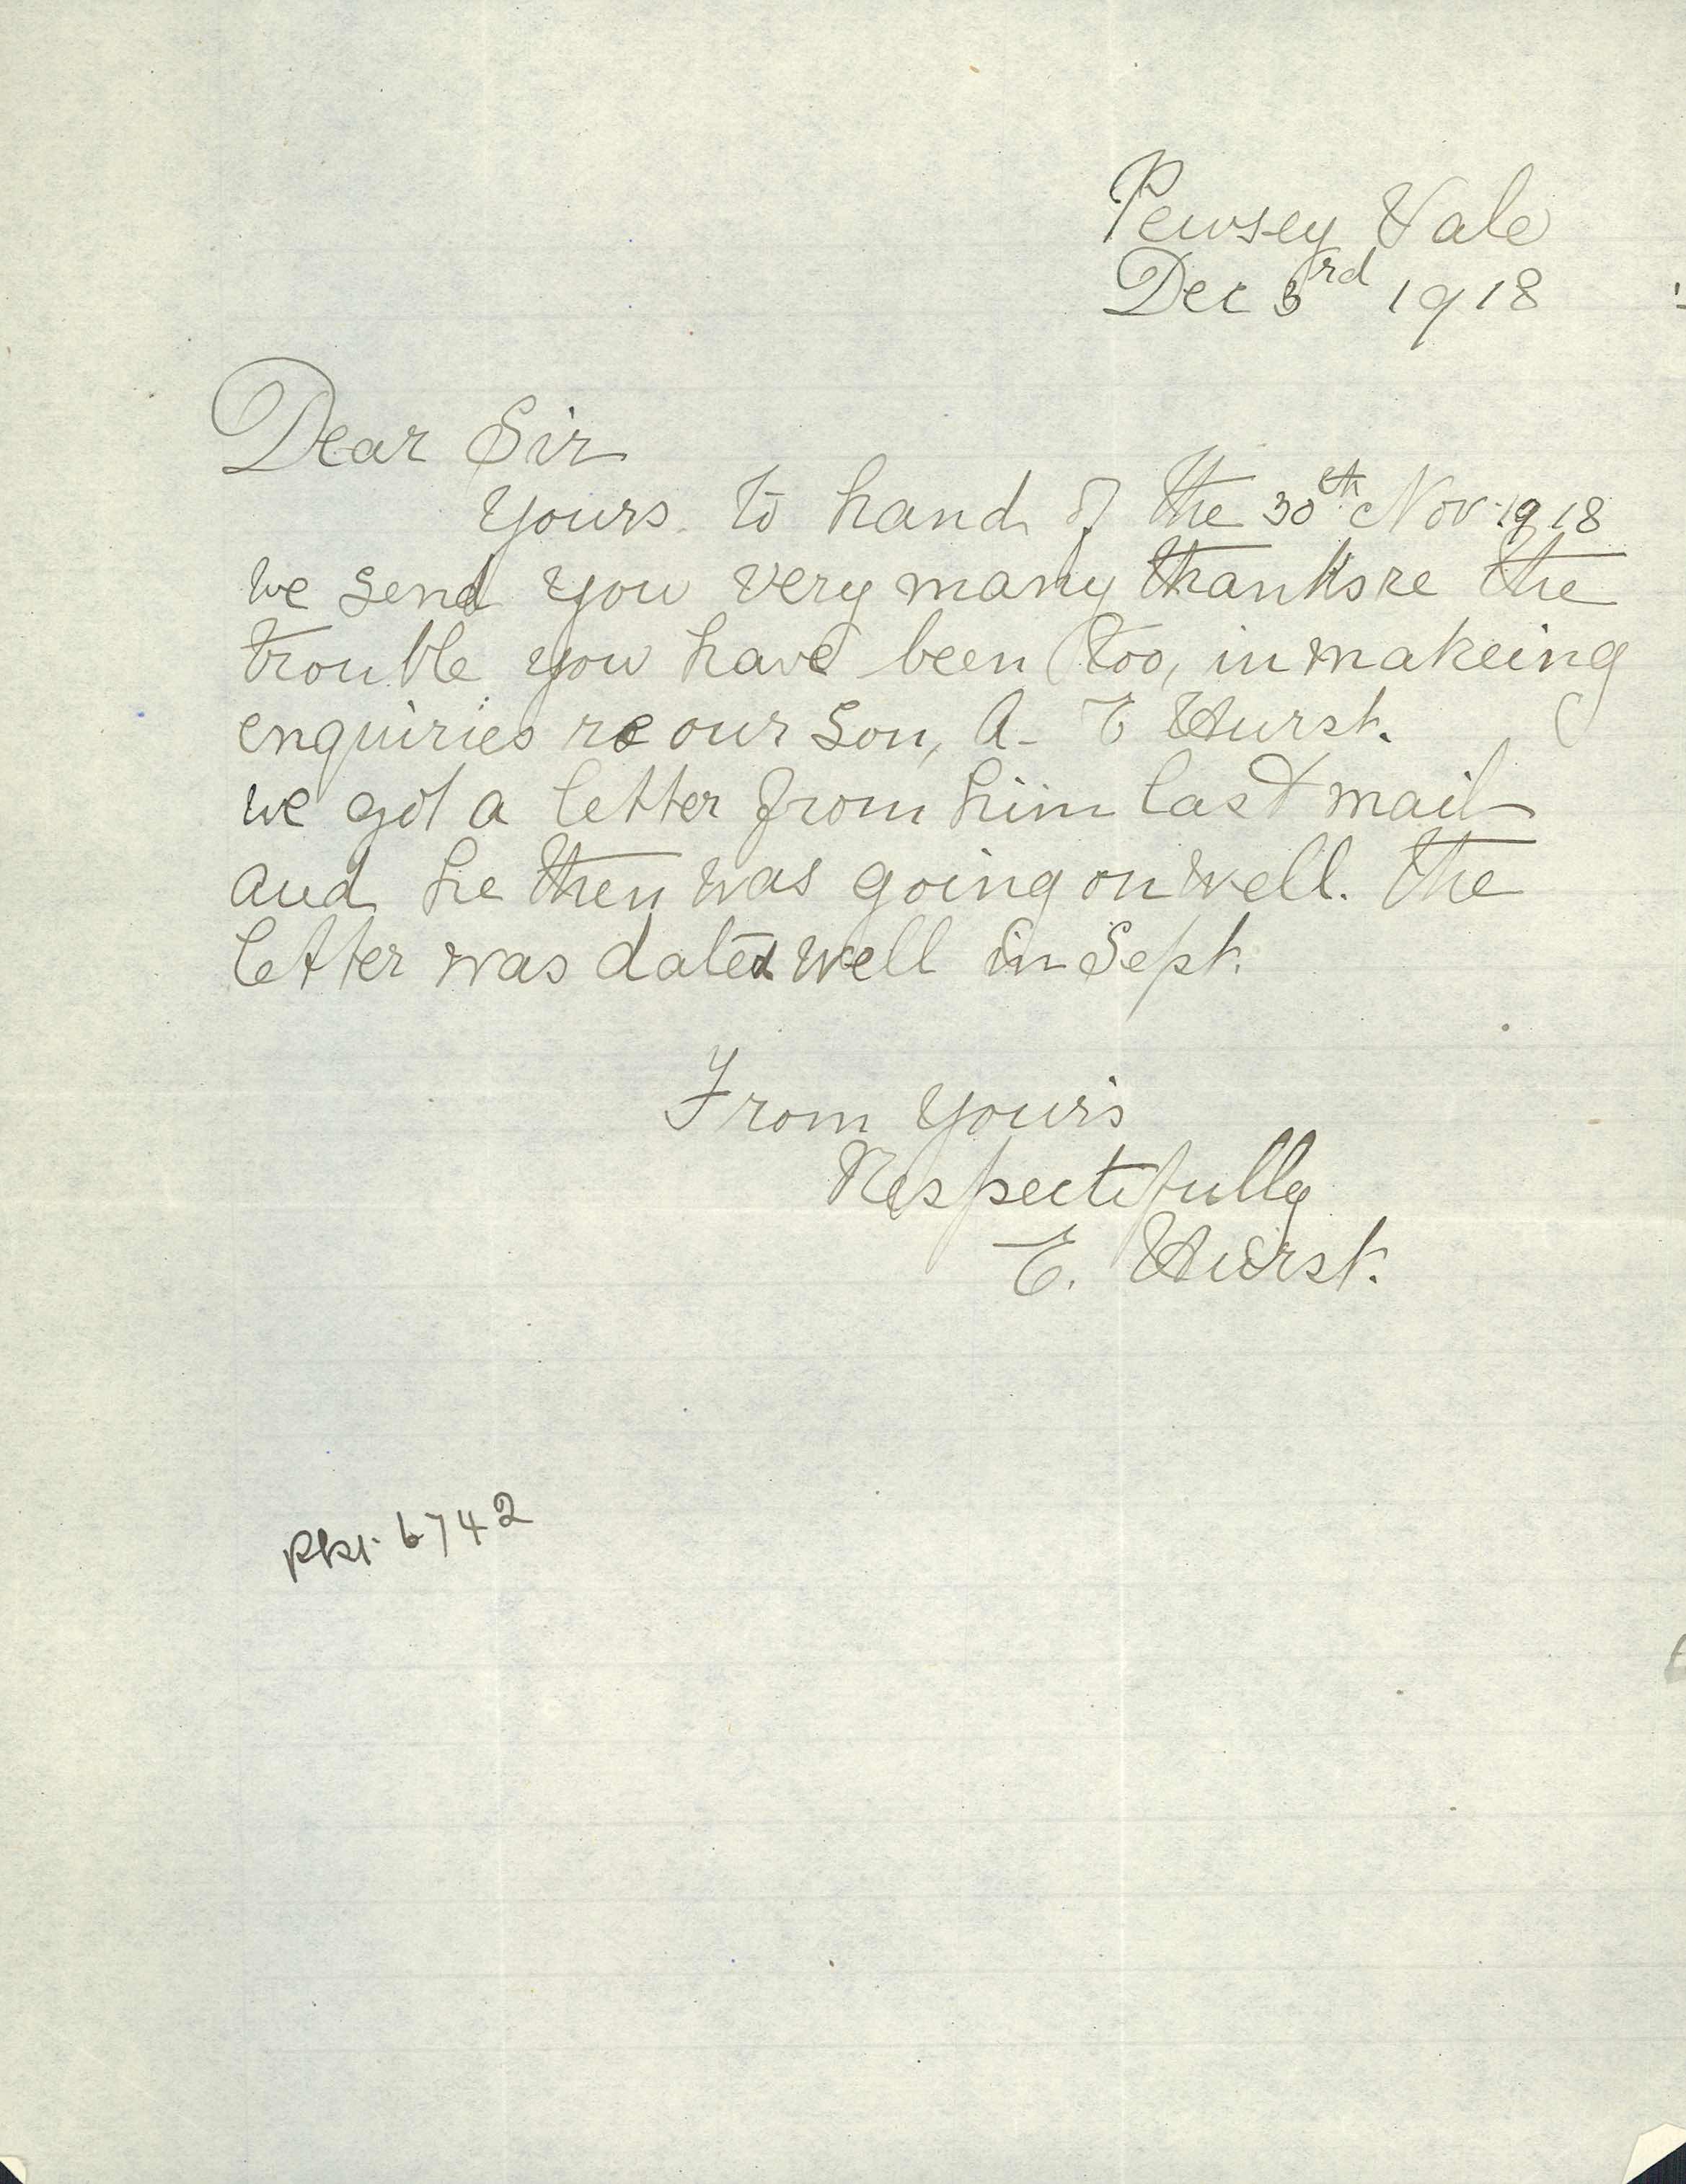 Pewsey Vale
Dec 3rd 1918
Dear Sir
Yours to hand of the 30th Nov 1918
we send you very many thanks re the
trouble you have been too, in makeing
enquiries re our son, A- E Hurst.
we got a letter from him last mail
and he then was going on well. The
letter was dated well in Sept.
From Yours
Respectifully
E. Hurst.
Pkt. 6742